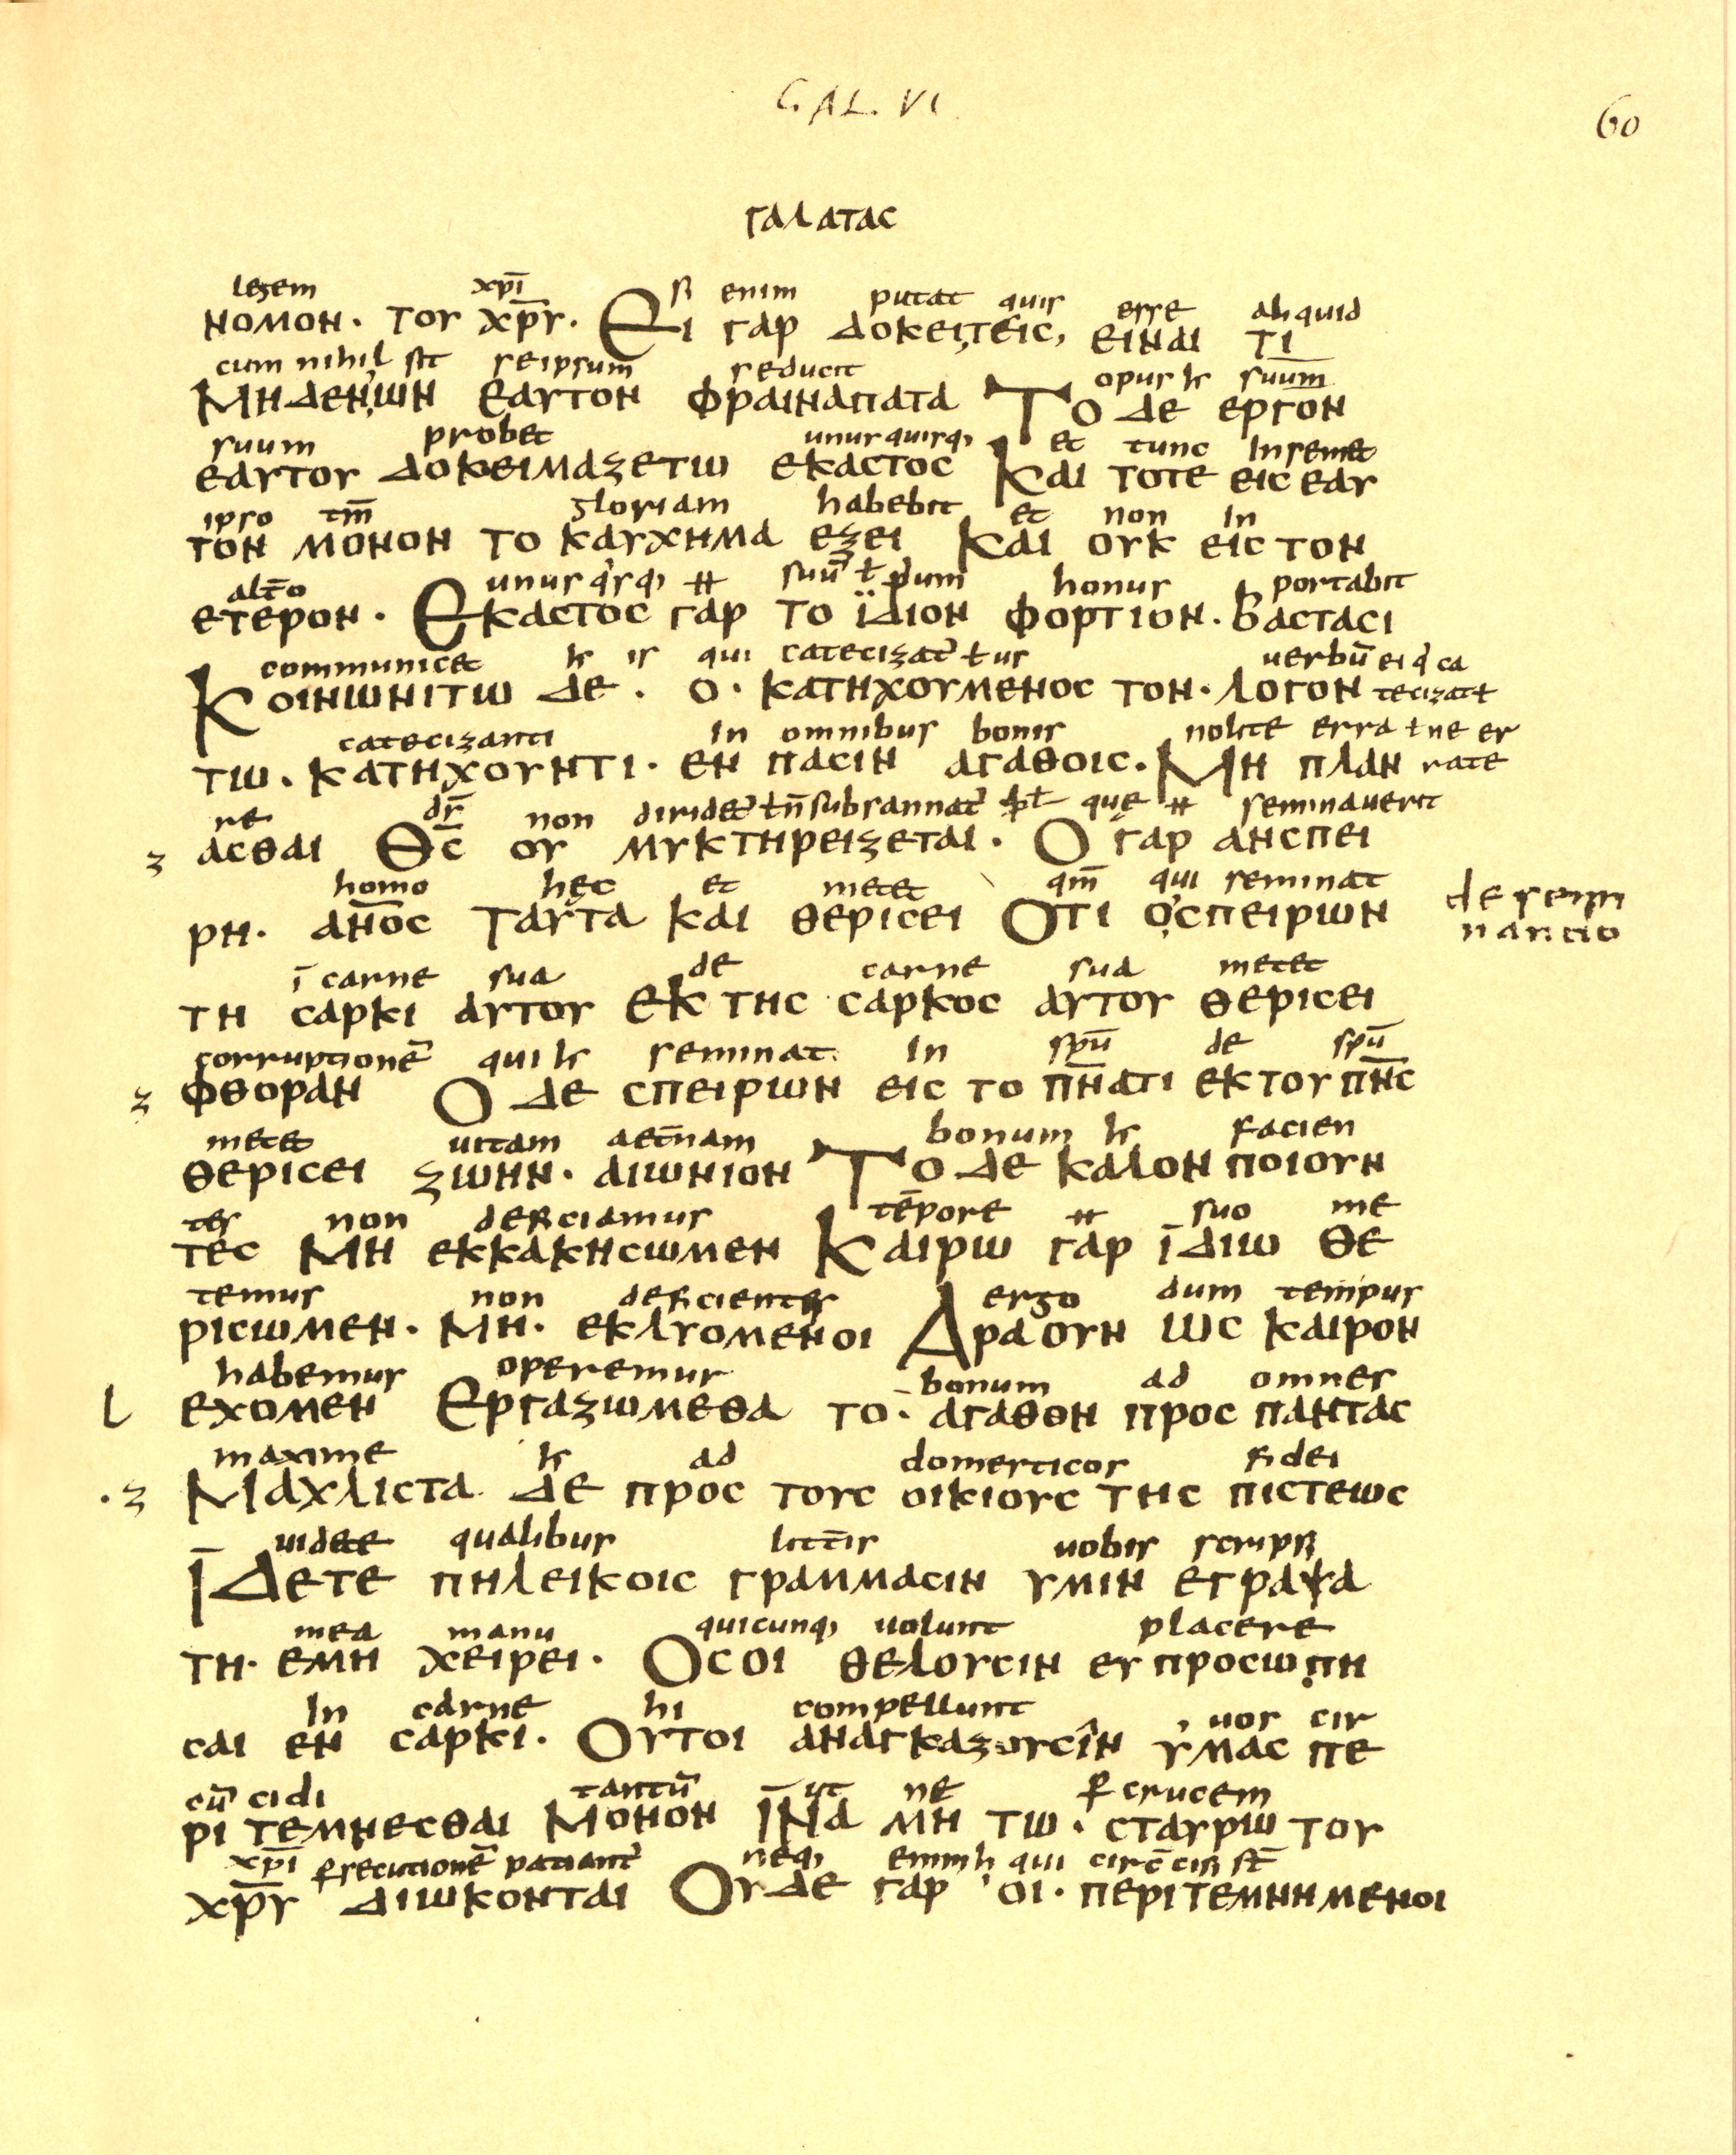 GAL. VI
60
ΓΑΛΑΤΑΣ
legem xp̅i si enim putat quis esse aliquid
ΝΟΜΟΝ· ΤΟΥ ΧΡ̅Υ· ΕΙ ΓΑΡ ΔΟΚΕΙΤΕΙΣ, ΕΙΝΑΙ ΤΙ
cum nihil sit seipsum seducit opus h suum
ΜΗΔΕΝΩΝ ΕΑΥΤΟΝ ΦΡΑΙΝΑΠΑΤΑ ΤΟ ΔΕ ΕΡΓΟΝ
suum probet unusquisq, et tunc In semet
ΕΑΥΤΟΥ ΔΟΚΕΙΜΑΖΕΤΩ ΕΚΑΣΤΟΣ ΚΑΙ ΤΟΤΕ ΕΙΣ ΕΑΥ
ipso tm̅ gloriam habebit et non In
ΤΟΝ ΜΟΝΟΝ ΤΟ ΚΑΥΧΗΜΑ ΕΞΕΙ ΚΑΙ ΟΥΚ ΕΙΣ ΤΟΝ
alt̅o unusq'sq, ++ suū ł p̱dum honus portabit
ΕΤΕΡΟΝ· ΕΚΑΣΤΟΣ ΓΑΡ ΤΟ ΪΔΙΟΝ ΦΟΡΤΙΟΝ· ΒΑΣΤΑΣΙ
communicet h is qui catecizat' ł us uerbū ei q' ca
ΚΟΙΝΩΝΙΤΩ ΔΕ· Ο· ΚΑΤΗΧΟΥΜΕΝΟΣ ΤΟΝ· ΛΟΓΟΝ tecizat ł
catecizanti In omnibus bonis nolite erra ł ne er
ΤΩ· ΚΑΤΗΧΟΥΝΤΙ· ΕΝ ΠΑΣΙΝ ΑΓΑΘΟΙΣ· ΜΗ ΠΛΑΝ rate
re ds̅ non diridet' ł n̅ subsannat' que ++ seminauerit
ΑΣΘΑΙ ΘΣ̅ ΟΥ ΜΥΚΤΗΡΕΙΖΕΤΑΙ· Ο ΓΑΡ ΑΝΣΠΕΙ
homo hęc et metet qm̅ qui seminat
ΡΗ· ΑΝ̅ΟΣ ΤΑΥΤΑ ΚΑΙ ΘΕΡΙΣΕΙ ΟΤΙ ΟΣΠΕΙΡΩΝ
de semi
nando
ī carne sua de carne sua metet
ΤΗ ΣΑΡΚΙ ΑΥΤΟΥ ΕΚ ΤΗΣ ΣΑΡΚΟΣ ΑΥΤΟΥ ΘΕΡΙΣΕΙ
corruptionē qui h seminat In spū de spū
ΦΘΟΡΑΝ Ο ΔΕ ΣΠΕΙΡΩΝ ΕΙΣ ΤΟ ΠΝ̅ΑΤΙ ΕΚ ΤΟΥ ΠΝ̅Σ
metet uitam aet̅nam bonum h facien
ΘΕΡΙΣΕΙ ΖΩΗΝ· ΑΙΩΝΙΟΝ ΤΟ ΔΕ ΚΑΛΟΝ ΠΟΙΟΥΝ
tes non deficiamus tēpore ++ suo me
ΤΕΣ ΜΗ ΕΚΚΑΚΗΣΩΜΕΝ ΚΑΙΡΩ ΓΑΡ ῙΔΙΩ ΘΕ
temus non deficientes ergo dum tempus
ΡΙΣΩΜΕΝ· ΜΗ· ΕΚΛΥΟΜΕΝΟΙ ΑΡΑ ΟΥΝ ΩΣ ΚΑΙΡΟΝ
habemus operemur bonum ad omnes
ΕΧΟΜΕΝ ΕΡΓΑΖΩΜΕΘΑ ΤΟ· ΑΓΑΘΟΝ ΠΡΟΣ ΠΑΝΤΑΣ
maxime h ad domesticos fidei
ΜΑΧΛΙΣΤΑ ΔΕ ΠΡΟΣ ΤΟΥΣ ΟΙΚΙΟΥΣ ΤΗΣ ΠΙΣΤΕΩΣ
uidete qualibus litt̅is uobis scripsi
ῙΔΕΤΕ ΠΗΛΕΙΚΟΙΣ ΓΡΑΜΜΑΣΙΝ ΥΜΙΝ ΕΓΡΑΨΑ
mea manu quicunq, uolunt placere
ΤΗ· ΕΜΗ ΧΕΙΡΕΙ· ΟΣΟΙ ΘΕΛΟΥΣΙΝ ΕΥΠΡΟΣΩΠΗ
In carne hi compellunt uos cir
ΣΑΙ ΕΝ ΣΑΡΚΙ· ΟΥΤΟΙ ΑΝΑΓΚΑΖΟΥΣΙΝ ΥΜΑΣ ΠΕ
cū cidi tantū ut ne p̱ crucem
ΡΙ ΤΕΜΝΕΣΘΑΙ ΜΟΝΟΝ ῙΝΑ ΜΗ ΤΩ· ΣΤΑΥΡΩ ΤΟΥ
xp̅i p̱secutionē patiant' neq, enim h qui circ̅cisi st̅
ΧΡ̅Υ ΔΙΩΚΟΝΤΑΙ ΟΥΔΕ ΓΑΡ ΟΙ· ΠΕΡΙΤΕΜΝΗΜΕΝΟΙ